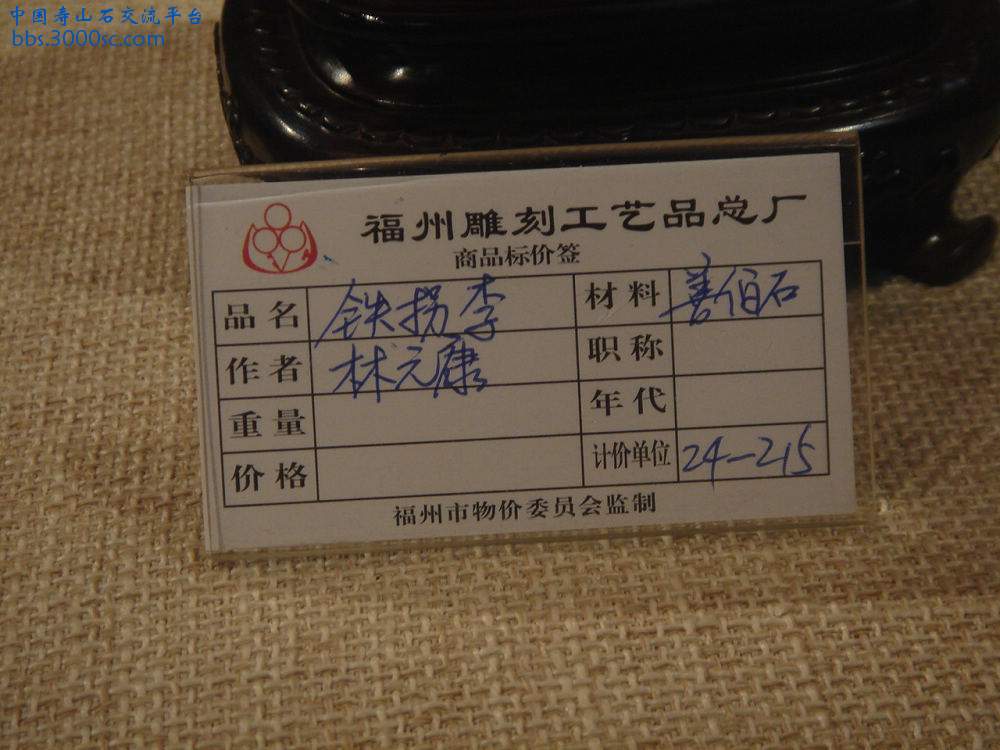 中国寿山石交流平台
bbs.3000sc.com
福州雕刻工艺品总厂
商品标价签
品名 铁拐李 材料 善伯石
作者 林元康 职称
重量 年代
价格 计价单位 24-215
福州市物价委员会监制